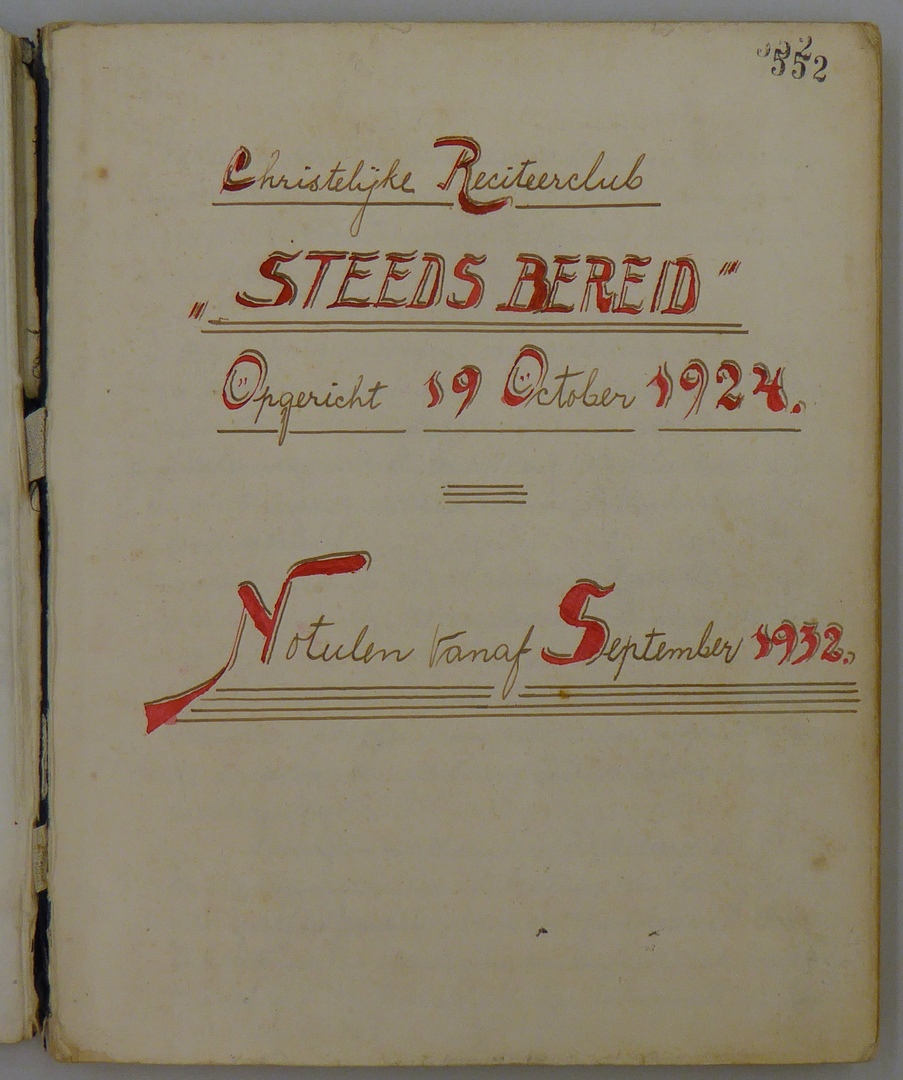 552
Christelijke Reciteerclub
„STEEDS BEREID"
Opgericht 19 October 1924.
Notulen vanaf September 1932.